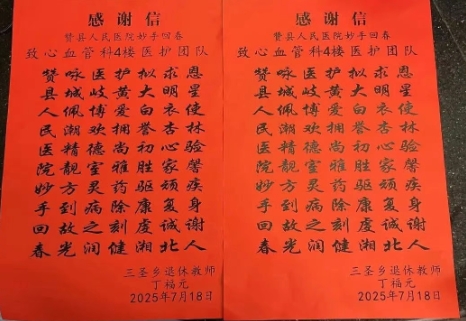 感谢信
赞县人民医院妙手回春
致心血管科4楼医护团队
赞咏医护拟求恩
县城岐黄大明星
人佩博爱白衣使
民潮欢拥誉杏林
医精德尚初心验
院靓室雅胜家馨
妙方灵药驱顽疾
手到病除康复身
回故之刻虔诚谢
春光润健湘北人
三圣乡退休教师
丁福元
2025年7月18日
感谢信
赞县人民医院妙手回春
致心血管科4楼医护团队
赞咏医护拟求恩
县城岐黄大明星
人佩博爱白衣使
民潮欢拥誉杏林
医精德尚初心验
院靓室雅胜家馨
妙方灵药驱顽疾
手到病除康复身
回故之刻虔诚谢
春光润健湘北人
三圣乡退休教师
丁福元
2025年7月18日